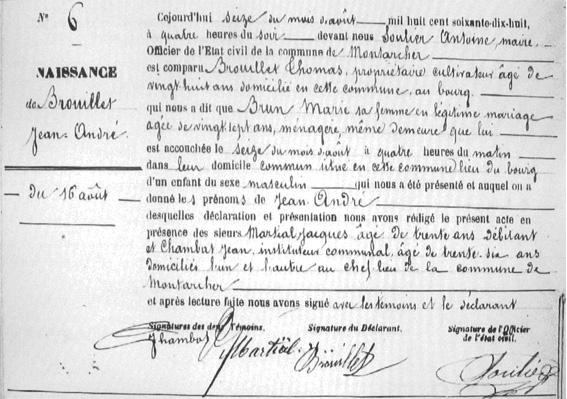 N° 6
NAISSANCE
de Brouillet
Jean-André.
du 16 août
Cejourd'hui seize du mois d'août mil huit cent soixante-dix-huit,
à quatre heures du soir devant nous Soulier Antoine, maire,
Officier de l'Etat civil de la commune de Montarcher
est comparu Brouillet Thomas, propriétaire cultivateur âgé de
vingt huit ans domicilié en cette commune, au bourg
qui nous a dit que Brun Marie sa femme en légitime mariage
agée de vingt sept ans, ménagère, même demeure que lui
est accouchée le seize du mois d'août à quatre heures du matin
dans leur domicile commun situé en cette commune lieu du bourg
d'un enfant du sexe masculin qui nous a été présenté et auquel on a
donné les prénoms de Jean André
desquelles déclaration et présentation nous avons rédigé le présent acte en
présence des sieurs Martial Jacques âgé de trente ans débitant
et Chambat Jean, instituteur communal, âgé de trente-six ans
domiciliés l'un et l'autre au chef-lieu de la commune de
Montarcher
et après lecture faite nous avons signé avec les témoins et le déclarant
Signatures des deux Témoins. Signature du Déclarant. Signature de l'Officier
de l'état civil.
Chambat Martial Brouillet Soulier